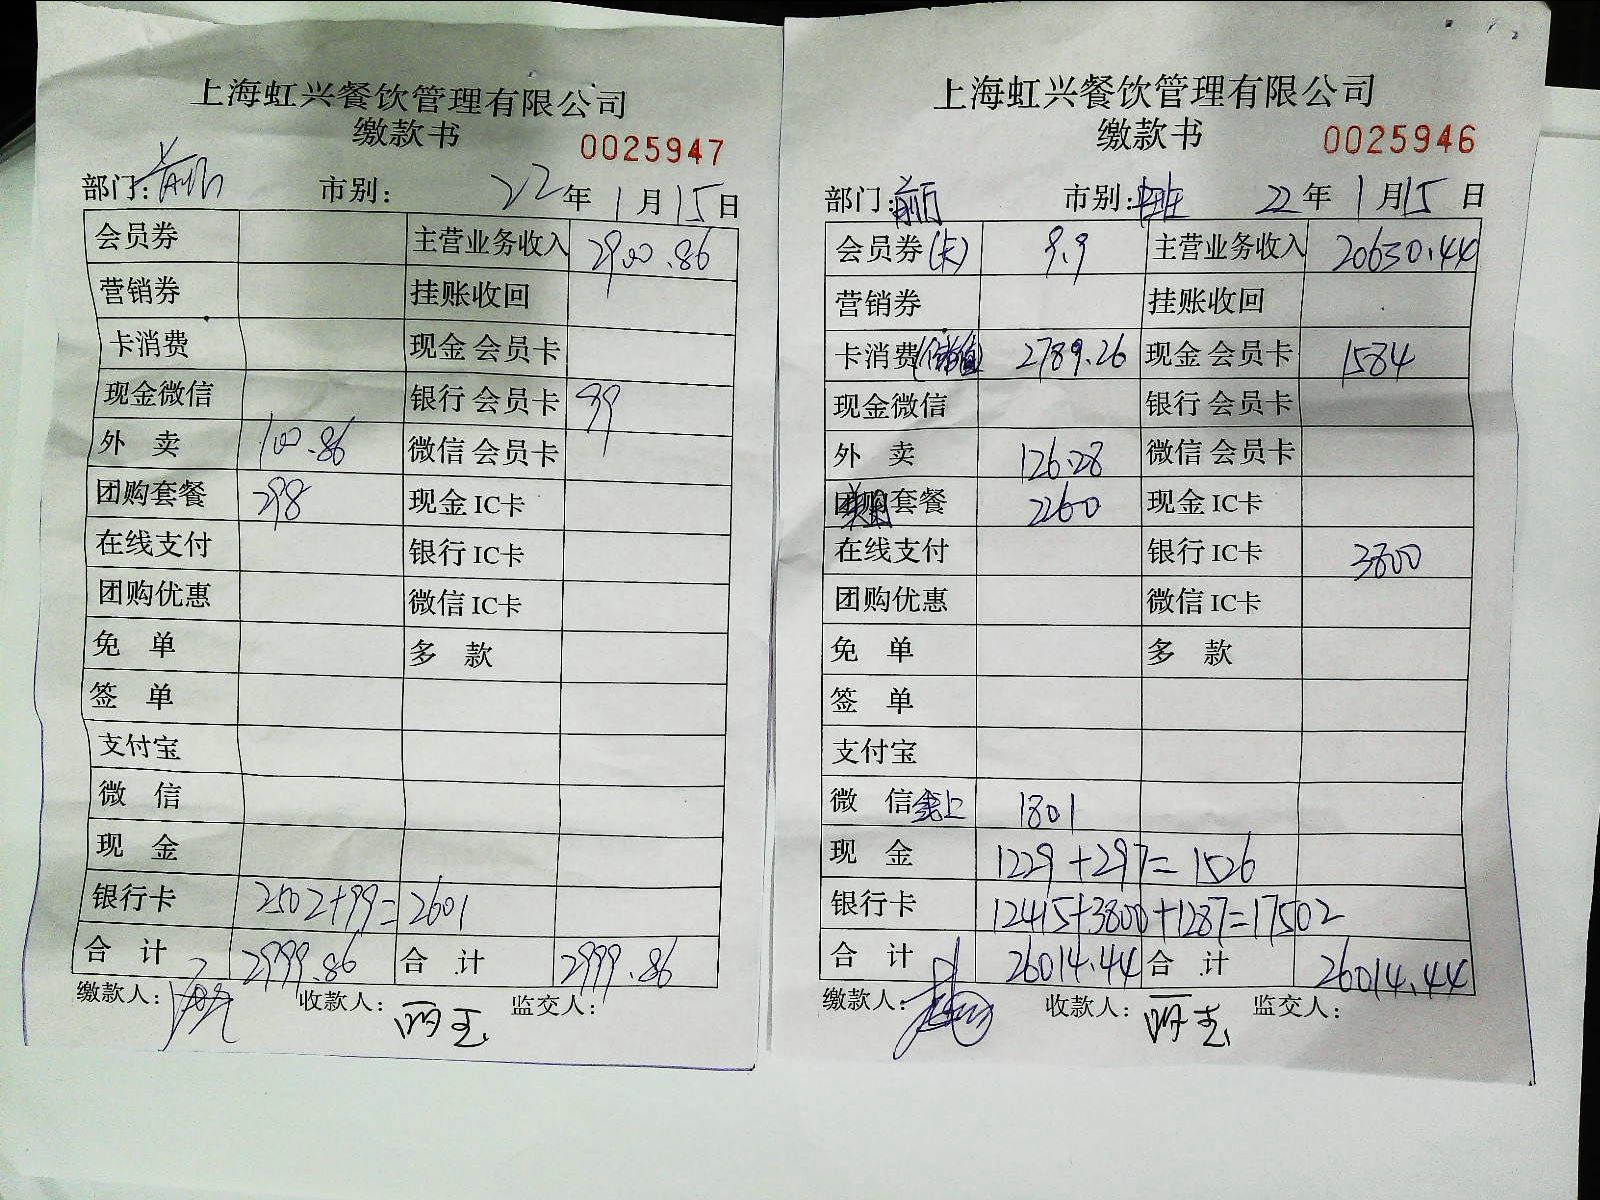 上海虹兴餐饮管理有限公司
缴款书 0025947
部门: 市别: 22年1月15日
会员券 主营业务收入 2900.86
营销券 挂账收回
卡消费 现金 会员卡
现金微信 银行 会员卡 99
外 卖 100.86 微信 会员卡
团购套餐 298 现金 IC卡
在线支付 银行 IC卡
团购优惠 微信 IC卡
免 单 多 款
签 单
支付宝
微 信
现 金
银行卡 2502+99=2601
合 计 2999.86 合 计 2999.86
缴款人: 收款人: 监交人:
上海虹兴餐饮管理有限公司
缴款书 0025946
部门:前厅 市别: 22年1月15日
会员券(卡) 9.9 主营业务收入 20630.44
营销券 挂账收回
卡消费(储值) 2789.26 现金 会员卡 1584
现金微信 银行 会员卡
外 卖 126.28 微信 会员卡
套餐 2260 现金 IC卡
在线支付 银行 IC卡 3800
团购优惠 微信 IC卡
免 单 多 款
签 单
支付宝
微 信线上 1801
现 金 1229+297=1526
银行卡 12415+3800+1287=17502
合 计 26014.44 合 计 26014.44
缴款人: 收款人: 监交人: